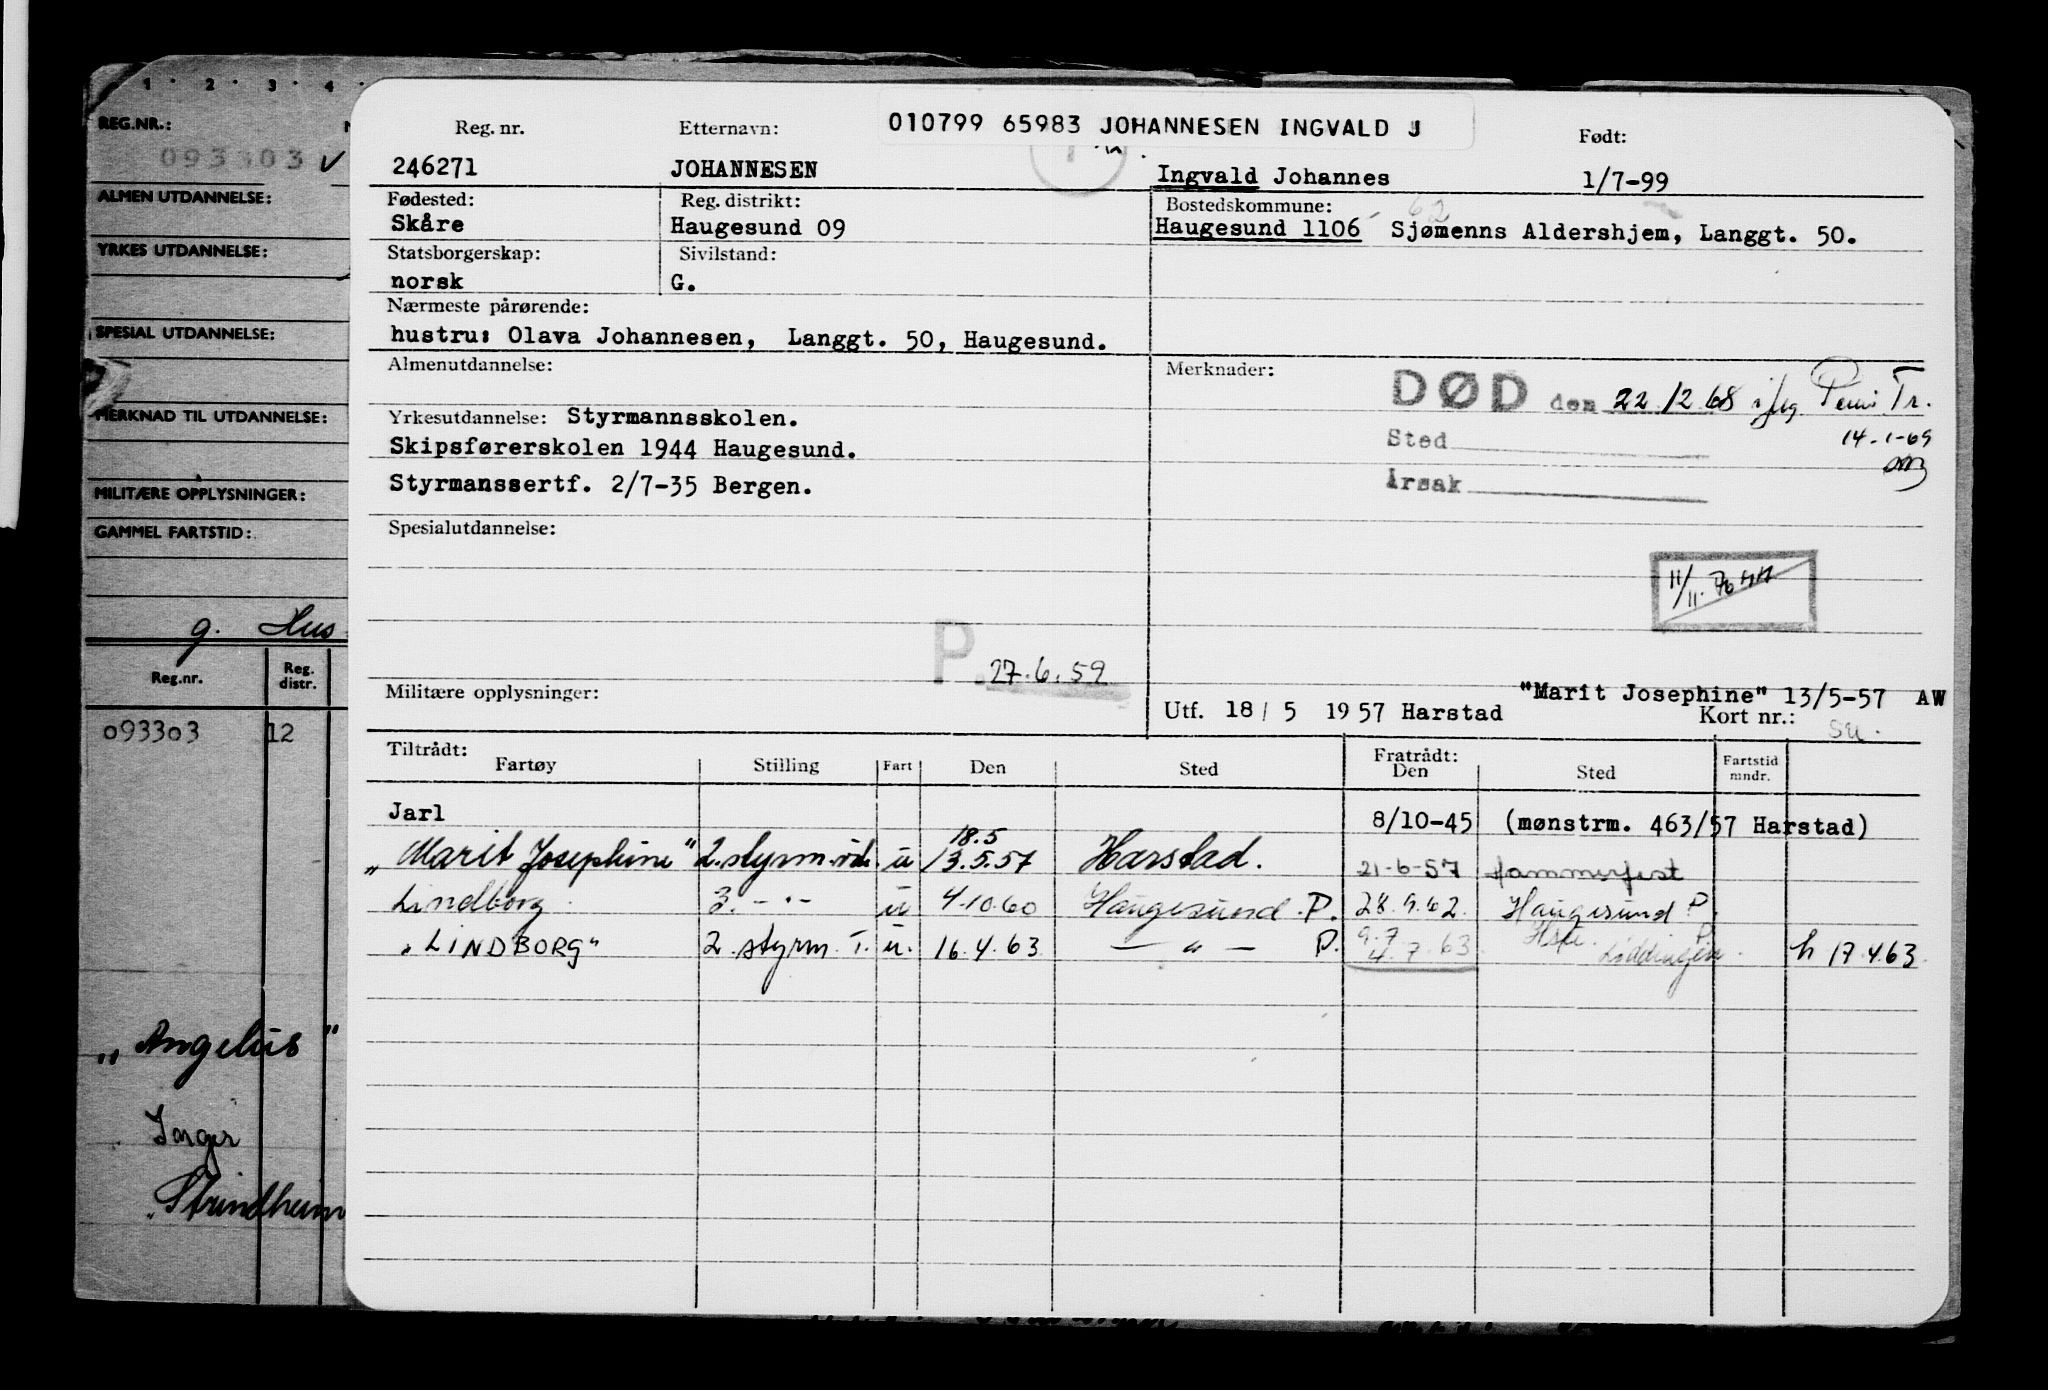 1 · 2 · 3 · 4 ·
REG.NR.:
093303 ✓
ALMEN UTDANNELSE:
YRKES UTDANNELSE:
SPESIAL UTDANNELSE:
MERKNAD TIL UTDANNELSE:
MILITÆRE OPPLYSNINGER:
GAMMEL FARTSTID:
g. Hus
Reg.nr. Reg. distr.
093303 12
„Angelus"
Inger
Strindheim
010799 65983 JOHANNESEN INGVALD J
Reg. nr. Etternavn: Født:
246271 JOHANNESEN Ingvald Johannes 1/7-99
Fødested: Reg. distrikt: Bostedskommune: 62
Skåre Haugesund 09 Haugesund 1106 Sjømenns Aldershjem, Langgt. 50.
Statsborgerskap: Sivilstand:
norsk G.
Nærmeste pårørende:
hustru: Olava Johannesen, Langgt. 50, Haugesund.
Almenutdannelse: Merknader:
DØD den 22/2 68 Tr.
Yrkesutdannelse: Styrmannsskolen.
Sted 14-1-69
Skipsførerskolen 1944 Haugesund.
Årsak
Styrmanssertf. 2/7-35 Bergen.
Spesialutdannelse:
11/11.
P. 27.6.59
Militære opplysninger:
"Marit Josephine" 13/5-57 AW
Utf. 18/5 1957 Harstad Kort nr.:
Tiltrådt: Fratrådt:
Fartøy Stilling Fart Den Sted Den Sted Fartstid mndr.
Jarl 8/10-45 (mønstrm. 463/57 Harstad)
18.5
„Marit Josephine" 2. styrm. u 13.5.57 Harstad. 21-6-57 Hammerfest
Lindborg 3. -"- u 4.10.60 Haugesund P. 28.9.62 Haugesund P.
"LINDBORG" 2. styrm. T. u. 16.4.63 — " — P. 9.7 4.7.63 P. Lødingen h 17.4.63.